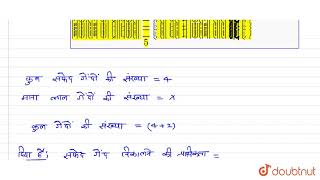 कुल सफेद गेंदों की संख्या = 4
माना लाल गेंदों की संख्या = x
कुल गेंदों की संख्या = (4+x)
दिया है: सफेद गेंद निकालने की प्रायिकता =
doubtnut